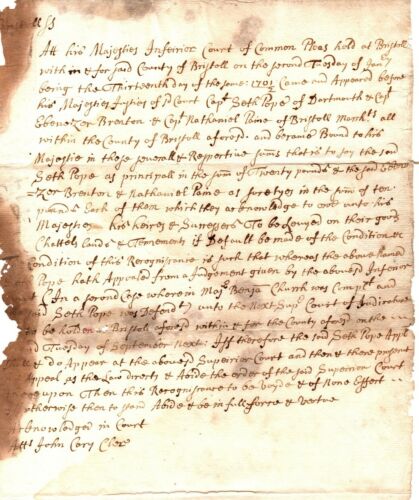 ll ss
Att his Majesties Inferior Court of Common Pleas held at Bristoll
with in & for said County of Bristoll on the second Tuesday of Jan'y
being the Thirteenth day of the same: 1701/2 Came and Appeared before
his Majesties Justices of sd Court Capt Seth Pope of Dartmouth & Capt
Ebenezer Brenton & Capt Nathaniel Paine of Bristoll March'ts all
within the County of Bristoll aforesd. and became Bound to his
Majestie in these severall & Respective sums that is to say the said
Seth Pope as principall in the sum of Twenty pounds & the said Eben
ezer Brenton & Nathaniel Paine as suretyes in the sum of ten
pounds Each of them which they acknowledge to owe unto his
Majestie his heires & Successors To be Levyed on their goods
Chattels Lands & Tenements if Default be made of the Condition &
Condition of this Recognisance is such that whereas the above named
Pope hath Appealed from a Judgement given by the abovesd Inferior
Court In a second Case wherein Majr Benja Church was Complt and
said Seth Pope was Defendt unto the Next Supr Court of Judicature
to be holden at Bristoll aforesd within & for the County aforesd on the
2nd Tuesday of September Next: Iff therefore the said Seth Pope
& do Appear at the abovesd Superiour Court and then & there
Appeal as the Law directs & Abide the order of the said Superiour Court
thereupon Then this Recognisance to be voyde & of None Effect
otherwise then to stand Abide & be in full force & vertue
Acknowledged in Court
Atts John Cary Cler